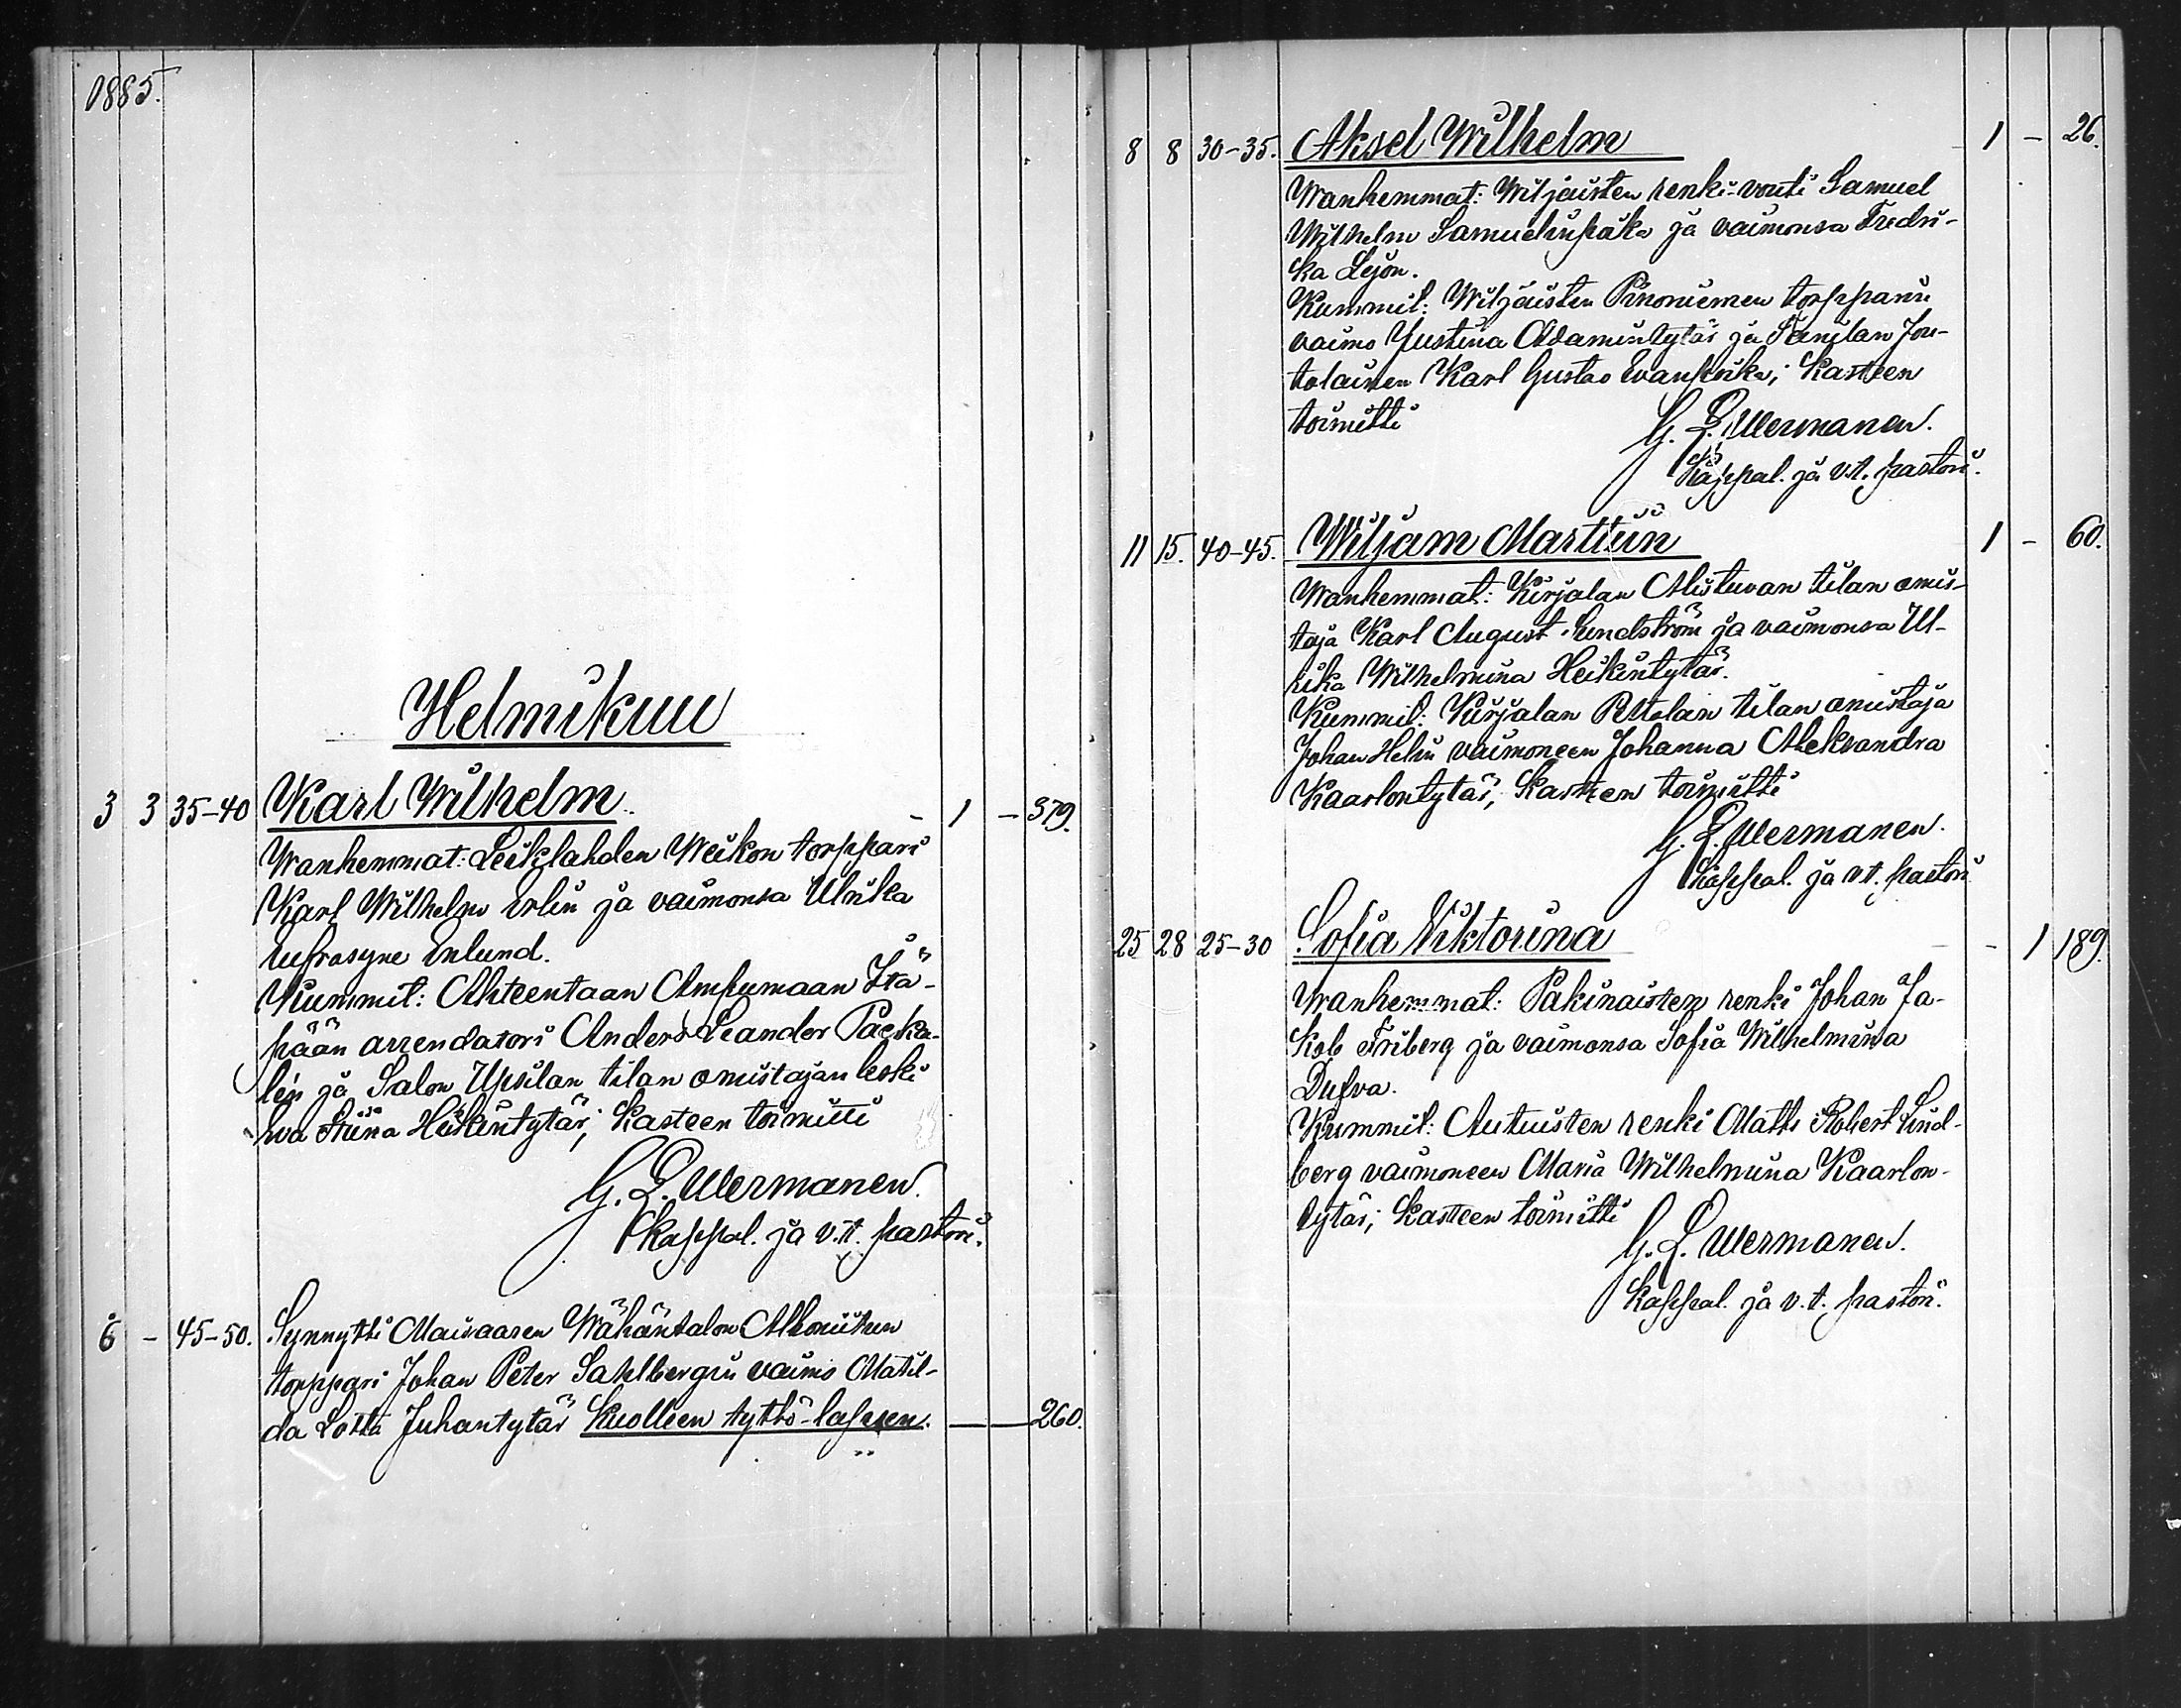 1885.
Helmikuu
3 3 35-40 Karl Wilhelm. 1 - 379.
Wanhemmat: Leiklahden Weikon torppari
Karl Wilhelm Erlin ja vaimonsa Ulrika
Eufrosyne Enlund.
Kummit: Ahteentaan Ampumaan Itä-
pään arrendatori Anders Leander Packa-
lén ja Salon Upsilan tilan omistajan leski
Eva Stiina Heikintytär; Kasteen toimitti
G. L. Wermanen.
Kappal. ja v.t. pastori.
6 - 45-50. Synnytti Maisaaren Wähäntalon
torppari Johan Peter Sahlbergin vaimo Matil-
da Lotta Juhantytär Kuolleen tyttö-lapsen. — — 260.
8 8 30-35. Aksel Wilhelm 1 - 26.
Wanhemmat: Wiljaisten renki-vouti Samuel
Wilhelm Samuelinpoika ja vaimonsa Fredri-
ka Lejon.
Kummit: Wiljaisten Pinoniemen torpparin
vaimo Justina Adamintytär ja Tanilan Jou-
tolainen Karl Gustav Evanpoika; Kasteen
toimitti
G. L. Wermanen.
Kappal. ja v.t. pastori.
11 15. 40-45. Wiljam Martiin 1 - 60.
Wanhemmat: Kirjalan Alistuvan tilan omis-
taja Karl August Lundström ja vaimonsa Ul-
rika Wilhelmina Heikintytär.
Kummit: Kirjalan Pettolan tilan omistaja
Johan Helin vaimoneen Johanna Aleksandra
Kaarlontytär; Kasteen toimitti
G. L. Wermanen.
Kappal. ja v.t. pastori
25 28 25-30 Sofia Viktorina - 1 189.
Wanhemmat: Pakinaisten renki Johan Ja-
kob Friberg ja vaimonsa Sofia Wilhelmina
Dufva.
Kummit: Autuisten renki Matts Robert Lind-
berg vaimoneen Maria Wilhelmina Kaarlon-
tytär; Kasteen toimitti
G. L. Wermanen.
Kappal. ja v.t. pastori.